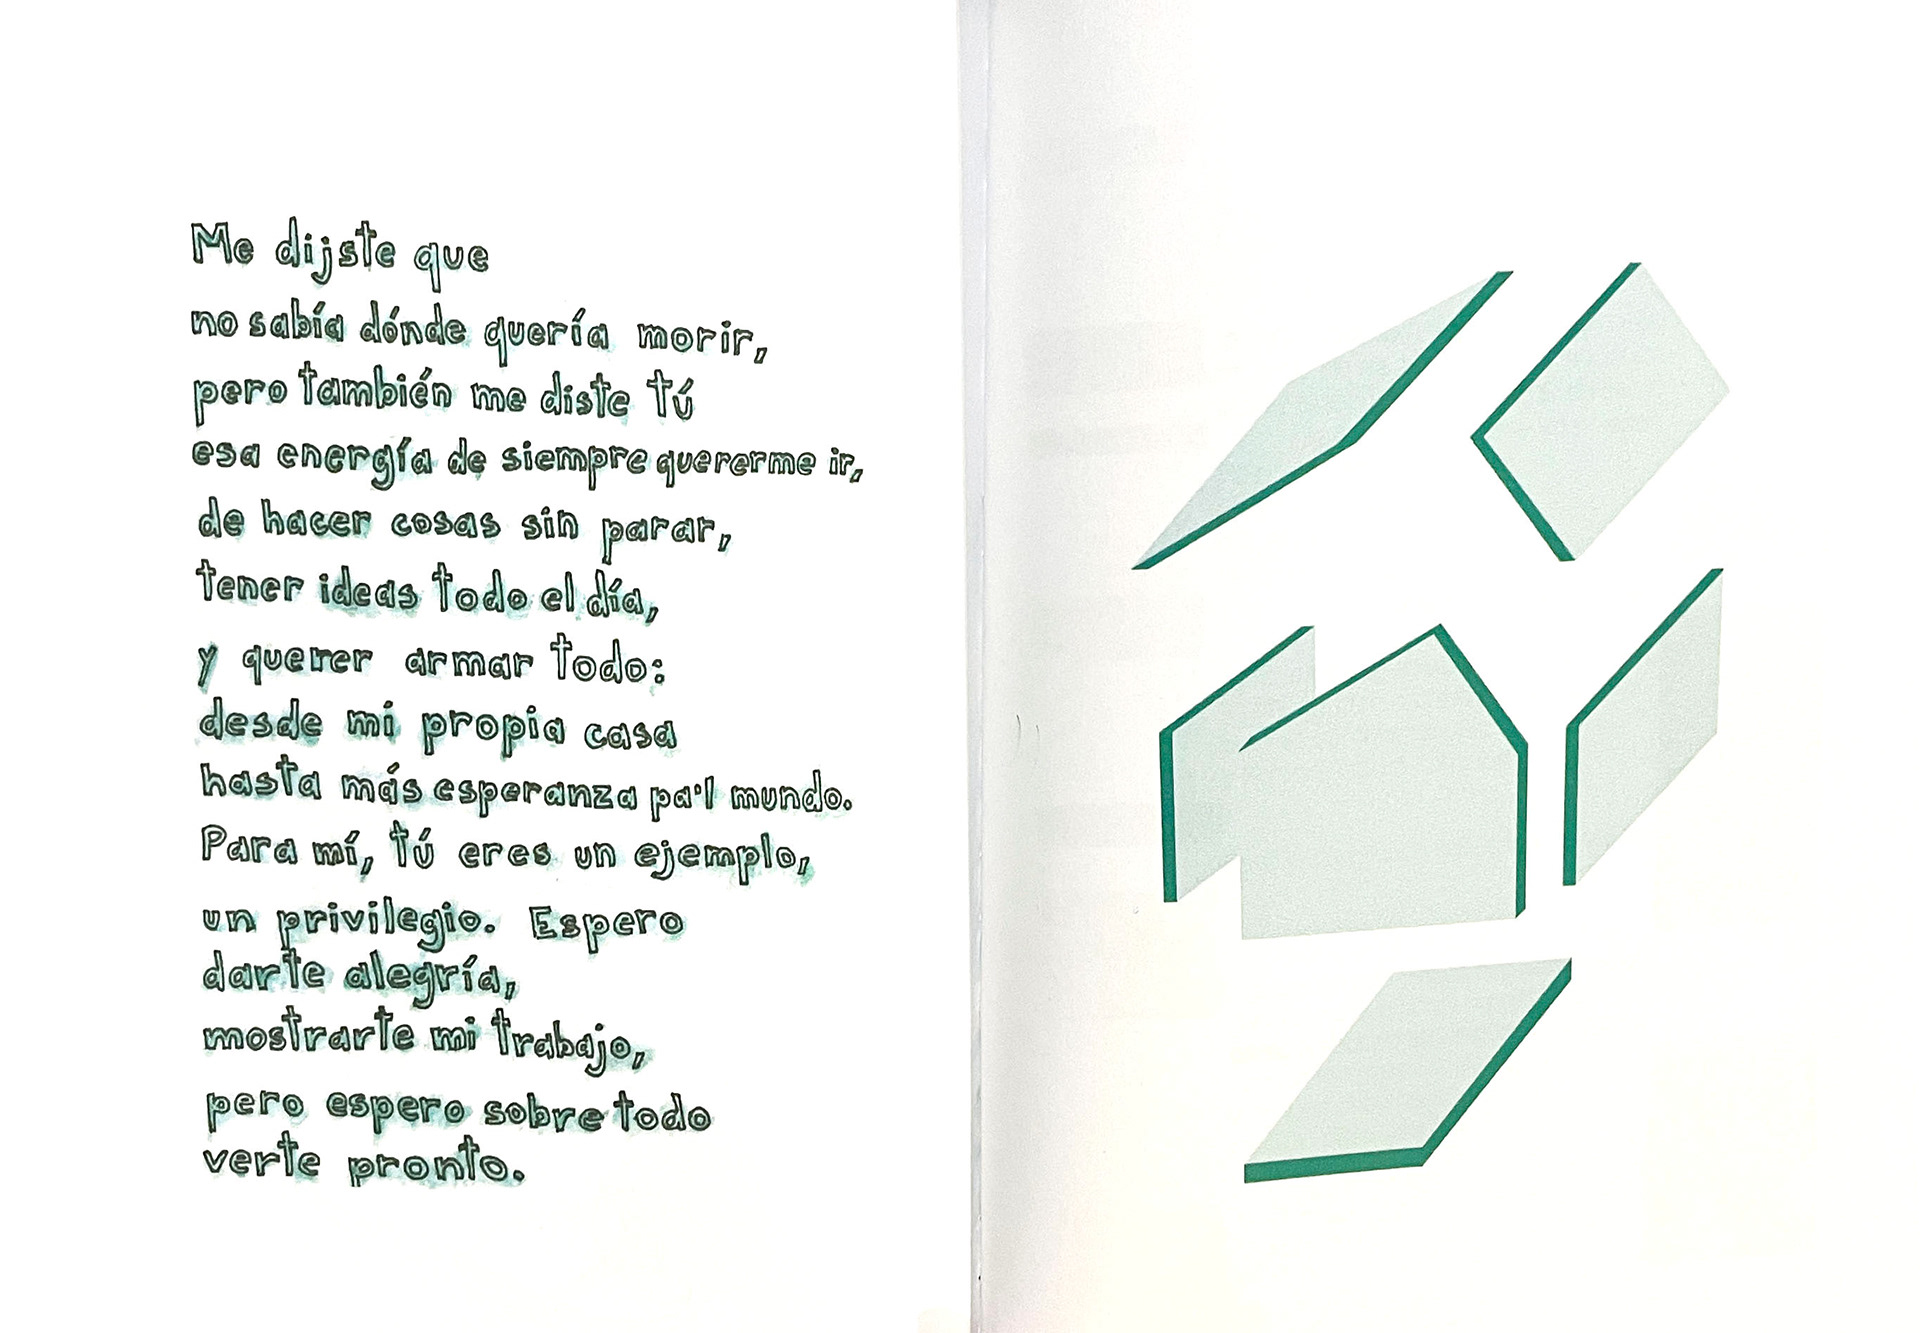 Me dijste que
no sabía dónde quería morir,
pero también me diste tú
esa energía de siempre quererme ir,
de hacer cosas sin parar,
tener ideas todo el día,
y querer armar todo:
desde mi propia casa
hasta más esperanza pa'l mundo.
Para mí, tú eres un ejemplo,
un privilegio. Espero
darte alegría,
mostrarte mi trabajo,
pero espero sobre todo
verte pronto.